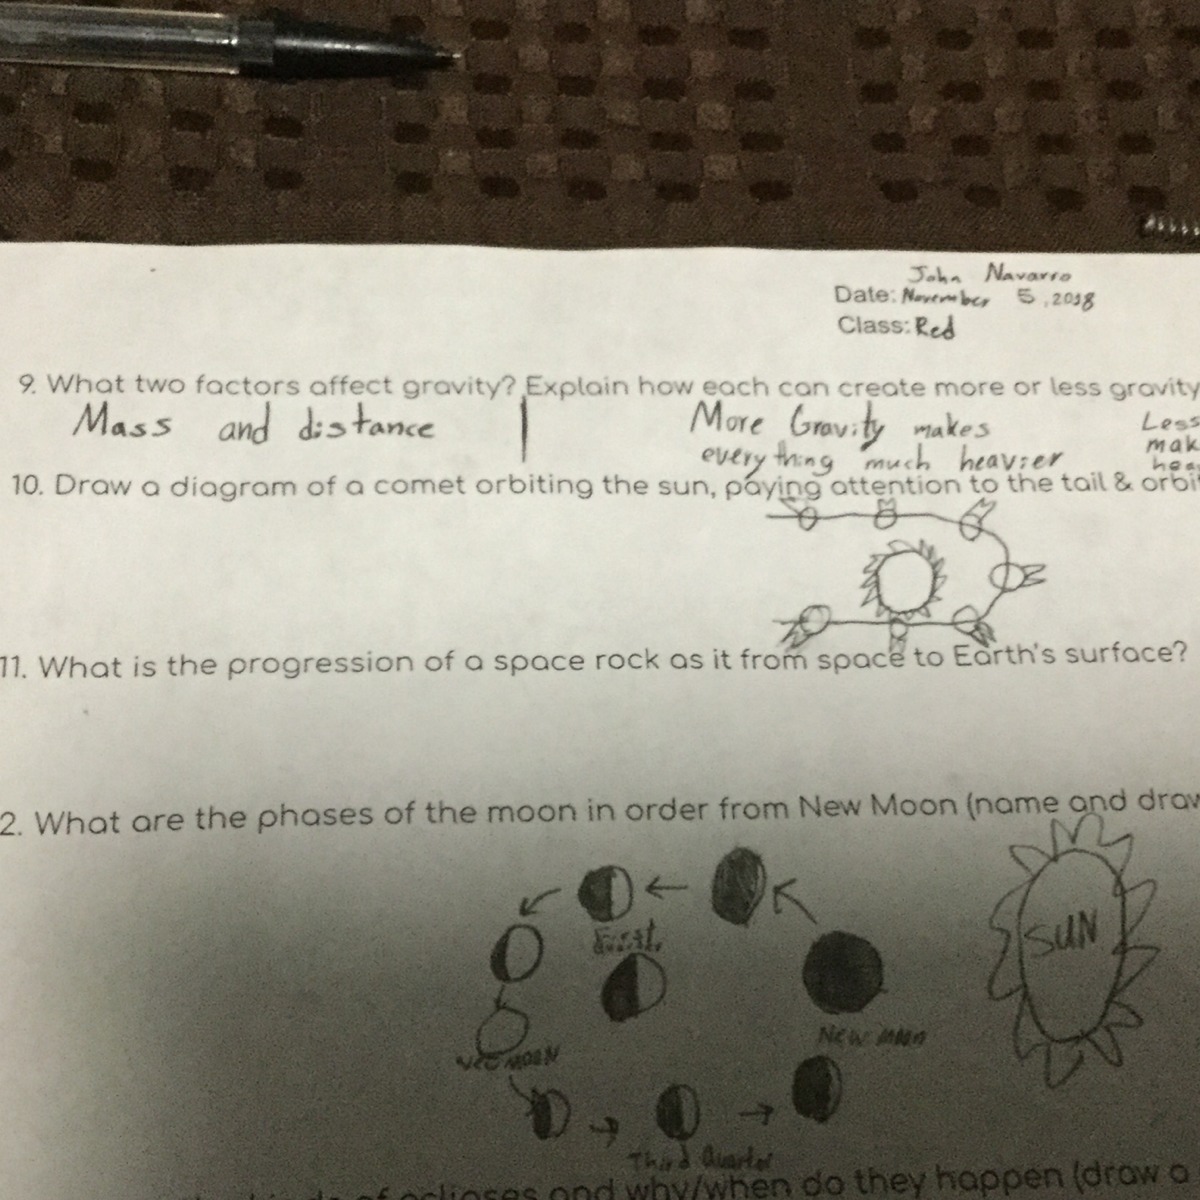 John Navarro
Date: November 5, 2018
Class: Red
9. What two factors affect gravity? Explain how each can create more or less gravity
Mass and distance
More Gravity makes
everything much heavier
Less
mak
10. Draw a diagram of a comet orbiting the sun, paying attention to the tail & orbit
11. What is the progression of a space rock as it from space to Earth's surface?
2. What are the phases of the moon in order from New Moon (name and draw
SUN
First
New Moon
MOON
Third Quarter
of eclipses and why/when do they happen (draw a